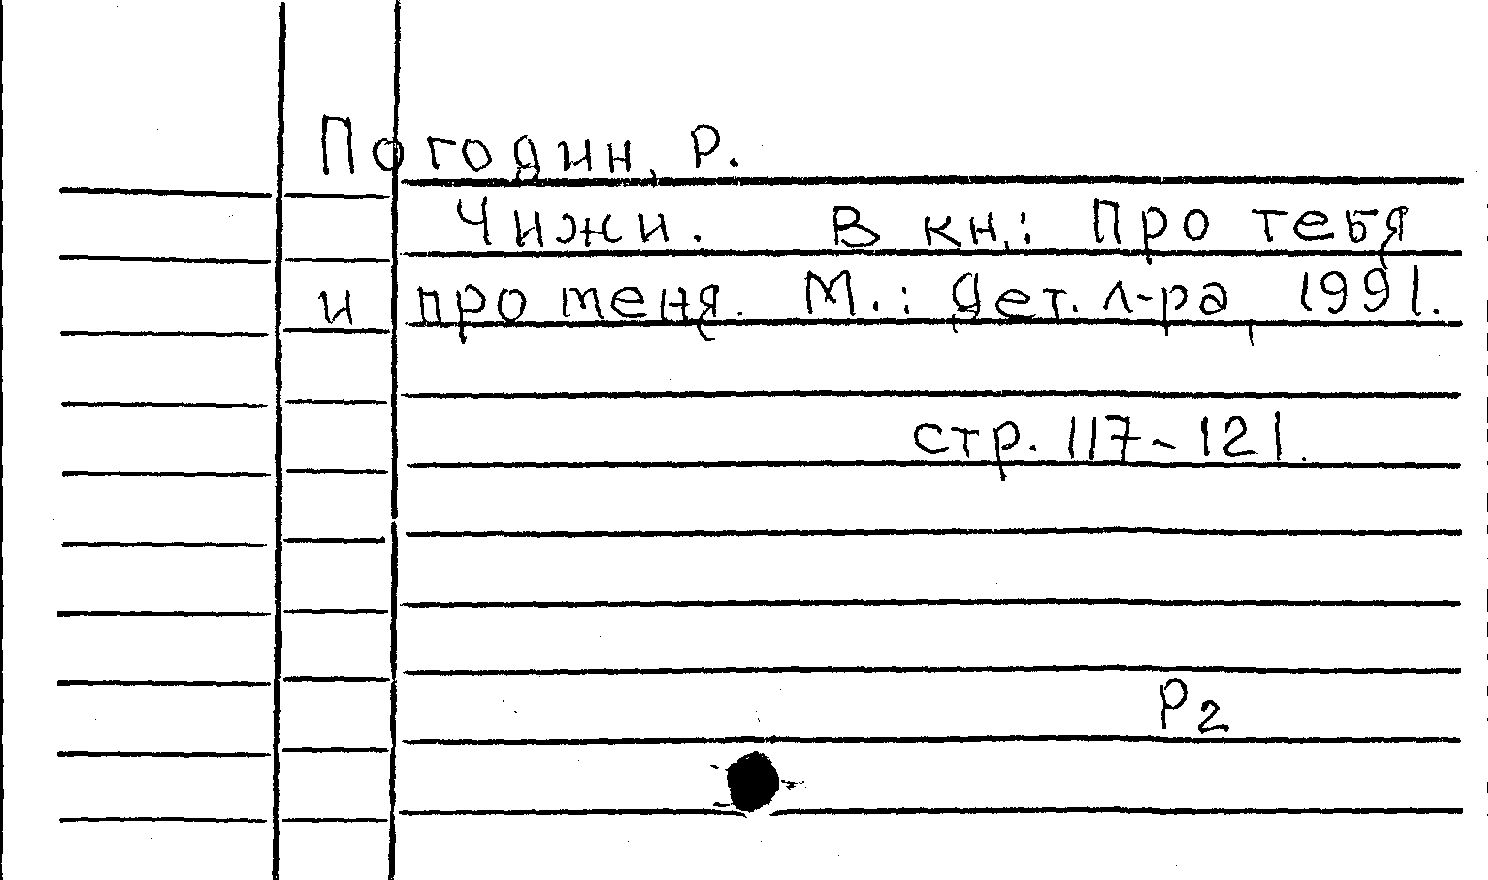 Погодин, Р.
Чижи. В кн.: Про тебя
и про меня. М.: Дет. л-ра, 1991.
стр. 117-121.
Р2